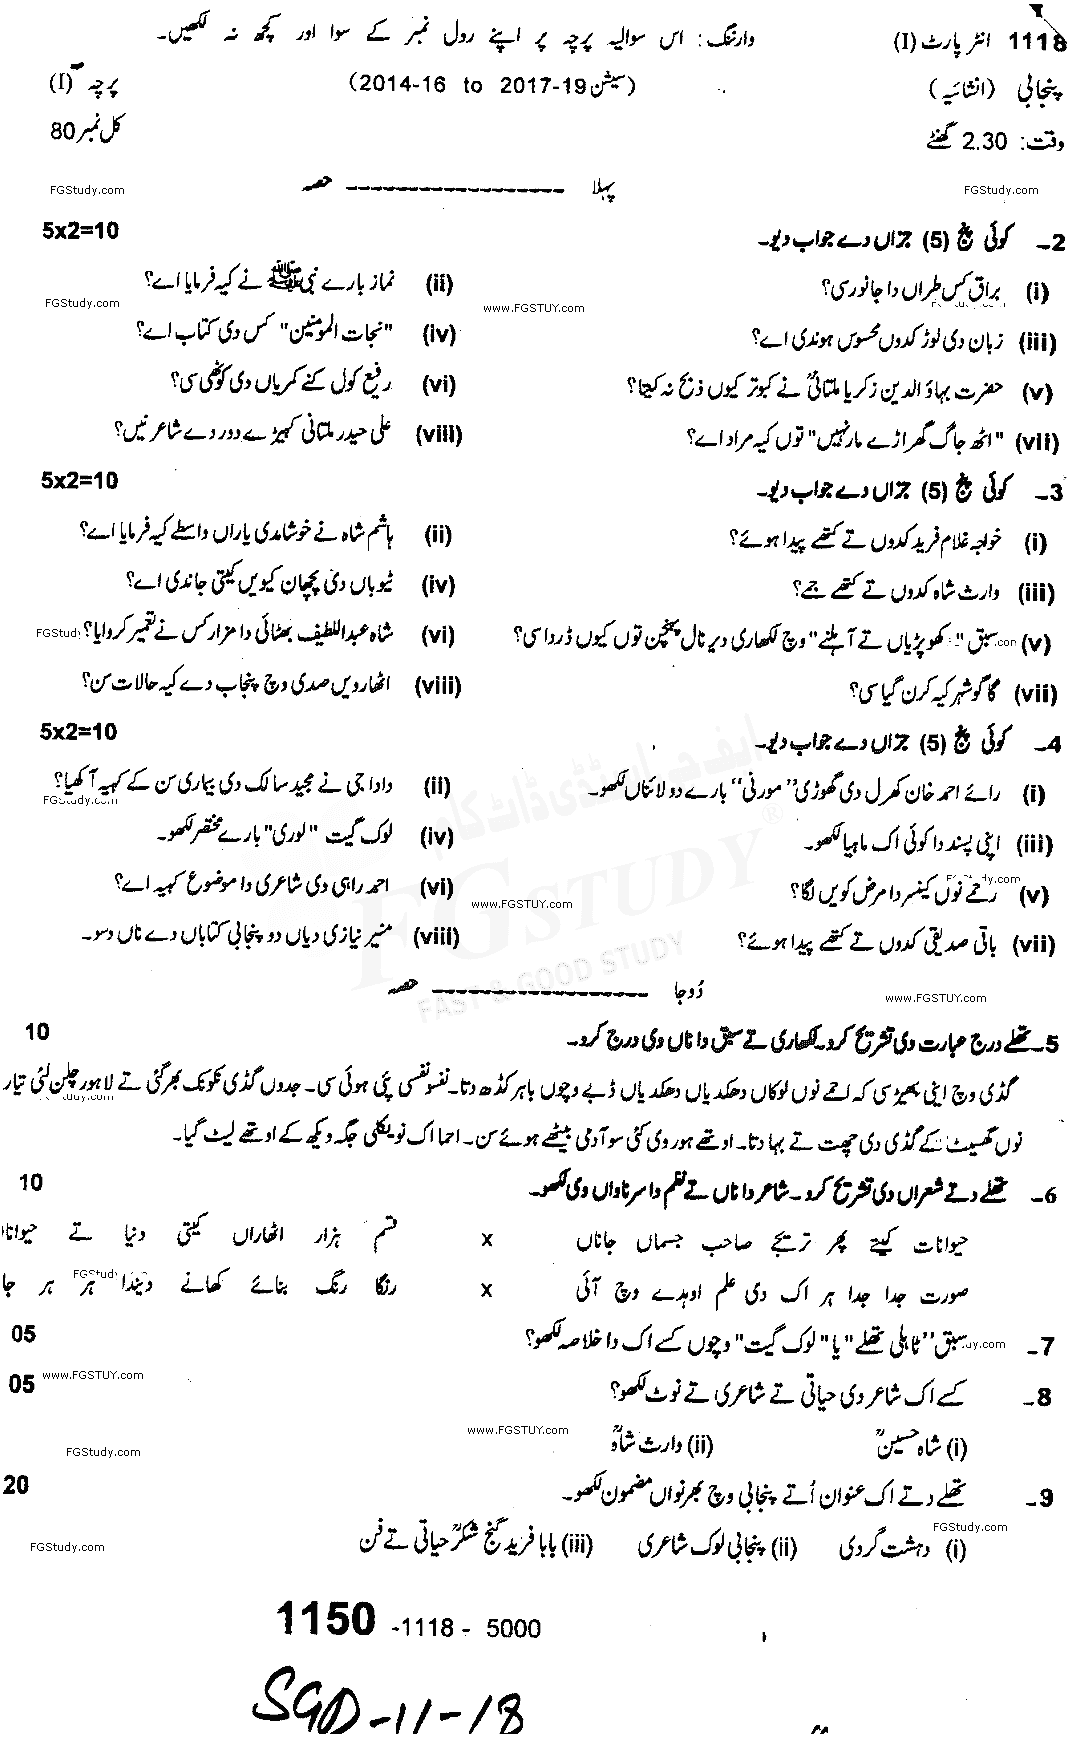 1118 انٹر پارٹ (I) وارننگ: اس سوالیہ پرچہ پر اپنے رول نمبر کے سوا اور کچھ نہ لکھیں۔
پنجابی (انشائیہ) (سیشن 2014-16 to 2017-19) پرچہ (I)
وقت: 2.30 گھنٹے کل نمبر 80
FGStudy.com پہلا ------------------- حصہ FGStudy.com
2- کوئی پنج (5) جزاں دے جواب دیو۔ 5x2=10
(i) براق کس طراں دا جانور سی؟ (ii) نماز بارے نبی ﷺ نے کیہ فرمایا اے؟
www.FGSTUY.com FGStudy.com
(iii) زبان دی لوڑ کدوں محسوس ہوندی اے؟ (iv) "نجات المومنین" کس دی کتاب اے؟
(v) حضرت بہاؤ الدین زکریا ملتانیؒ نے کبوتر کیوں ذبح نہ کیتا؟ (vi) رفیع کول کنے کمریاں دی کوٹھی سی؟
(vii) "اٹھ جاگ گھراڑے مار نہیں" توں کیہ مراد اے؟ (viii) علی حیدر ملتانی کیہڑے دور دے شاعر نیں؟
3- کوئی پنج (5) جزاں دے جواب دیو۔ 5x2=10
(i) خواجہ غلام فرید کدوں تے کتھے پیدا ہوئے؟ (ii) ہاشم شاہ نے خوشامدی یاراں واسطے کیہ فرمایا اے؟
(iii) وارث شاہ کدوں تے کتھے جمے؟ (iv) ٹیوباں دی پچھان کیویں کیتی جاندی اے؟
(v) سبق "کھوپڑیاں تے آہلنے" وچ لکھاری دیر نال پہنچن توں کیوں ڈردا سی؟ (vi) شاہ عبداللطیف بھٹائی دا مزار کس نے تعمیر کروایا؟ FGStud
(vii) گاگو شہر کیہ کرن گیا سی؟ (viii) اٹھارویں صدی وچ پنجاب دے کیہ حالات سن؟
4- کوئی پنج (5) جزاں دے جواب دیو۔ 5x2=10
(i) رائے احمد خان کھرل دی گھوڑی "مورنی" بارے دو لائناں لکھو۔ (ii) دادا جی نے مجید سالک دی بیماری سن کے کیہ آکھیا؟
FGStudy.com
(iii) اپنی پسند دا کوئی اک ماہیا لکھو۔ (iv) لوک گیت "لوری" بارے مختصر لکھو۔
(v) رحمے نوں کینسر دا مرض کویں لگا؟ (vi) احمد راہی دی شاعری دا موضوع کیہ اے؟
www.FGSTUY.com
(vii) باقی صدیقی کدوں تے کتھے پیدا ہوئے؟ (viii) منیر نیازی دیاں دو پنجابی کتاباں دے ناں دسو۔
ایف جی سٹڈی ڈاٹ کام
FGSTUDY ®
FAST & GOOD STUDY
دُوجا ------------------- حصہ
www.FGSTUY.com
5- تھلے درج عبارت دی تشریح کرو۔ لکھاری تے سبق دا ناں وی درج کرو۔ 10
گڈی وچ اینی بھیڑ سی کہ احمے نوں لوکاں دھکدیاں دھکدیاں ڈبے وچوں باہر کڈھ دتا۔ نفسو نفسی پئی ہوئی سی۔ جدوں گڈی نکونک بھر گئی تے لاہور چلن لئی تیار
نوں گھسیٹ کے گڈی دی چھت تے بہا دتا۔ اوتھے ہور وی کئی سو آدمی بیٹھے ہوئے سن۔ احما اک نویکلی جگہ ویکھ کے اوتھے لیٹ گیا۔
6- تھلے دتے شعراں دی تشریح کرو۔ شاعر دا ناں تے نظم دا سرناواں وی لکھو۔ 10
حیوانات کیتے پھر تریجے صاحب جسماں جاناں x قسم ہزار اٹھاراں کیتی دنیا تے حیوانا
صورت جدا جدا ہر اک دی علم اوہدے وچ آئی x رنگا رنگ بنائے کھانے دیندا ہر ہر جا
FGStudy
7- سبق "ٹاہلی تھلے" یا "لوک گیت" وچوں کسے اک دا خلاصہ لکھو؟ 05
8- کسے اک شاعر دی حیاتی تے شاعری تے نوٹ لکھو؟ 05
www.FGSTUY.com
(i) شاہ حسینؒ (ii) وارث شاہؒ
www.FGSTUY.com FGStudy.com
9- تھلے دتے اک عنوان اُتے پنجابی وچ بھرنواں مضمون لکھو۔ 20
FGStudy.com
(i) دہشت گردی (ii) پنجابی لوک شاعری (iii) بابا فرید گنج شکرؒ حیاتی تے فن
FGStudy.com
1150 -1118 - 5000
SGD-11-18